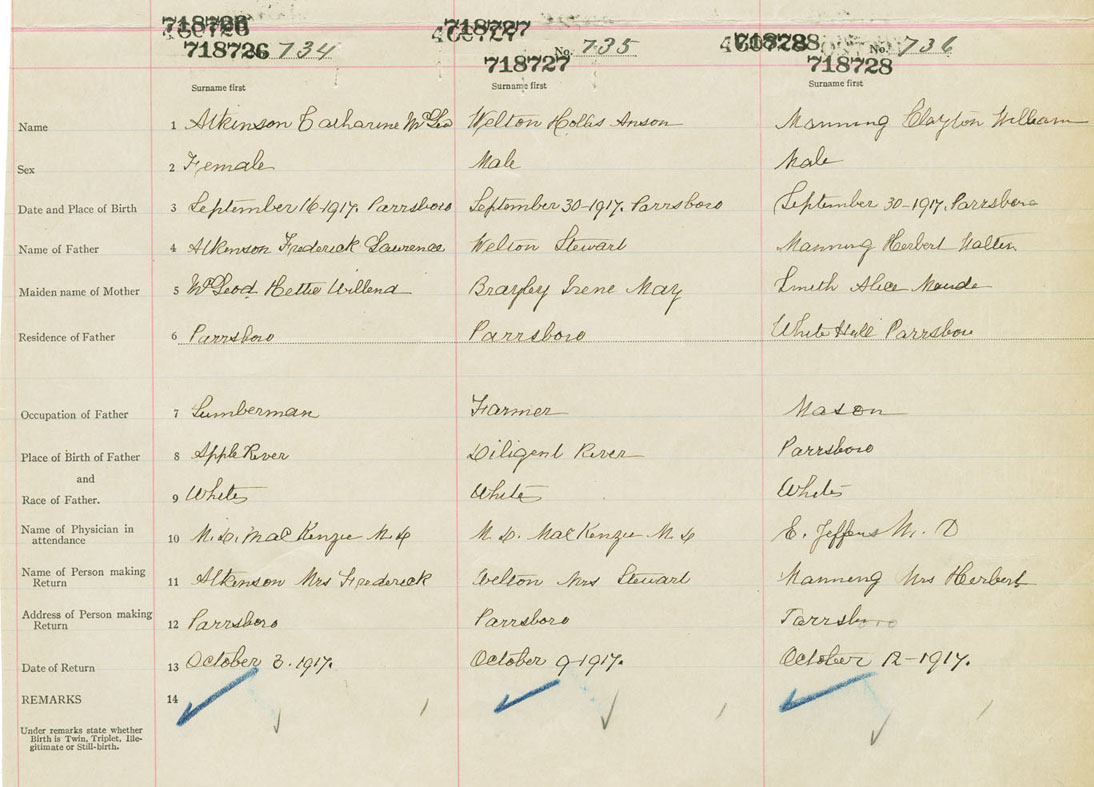 718726 718727 718728
718726 734 718727 No. 735 718728 No. 736
Surname first Surname first Surname first
Name 1 Atkinson Catharine McLeo Welton Hollis Anson Manning Clayton William
Sex 2 Female Male Male
Date and Place of Birth 3 September 16-1917. Parrsboro September 30-1917. Parrsboro September 30-1917. Parrsboro
Name of Father 4 Atkinson Frederick Lawrence Welton Stewart Manning Herbert Walter
Maiden name of Mother 5 McLeod Hettie Brayley Irene May Smith Alice Maude
Residence of Father 6 Parrsboro Parrsboro White Hall Parrsboro
Occupation of Father 7 Lumberman Farmer Mason
Place of Birth of Father 8 Apple River Diligent River Parrsboro
and
Race of Father. 9 White White White
Name of Physician in attendance 10 M.D. MacKenzie M D M D. MacKenzie M D E. Jeffers M. D
Name of Person making Return 11 Atkinson Mrs Frederick Welton Mrs Stewart Manning Mrs Herbert
Address of Person making Return 12 Parrsboro Parrsboro Parrsboro
Date of Return 13 October 3. 1917. October 9-1917. October 12-1917.
REMARKS 14
Under remarks state whether
Birth is Twin, Triplet, Ille-
gitimate or Still-birth.